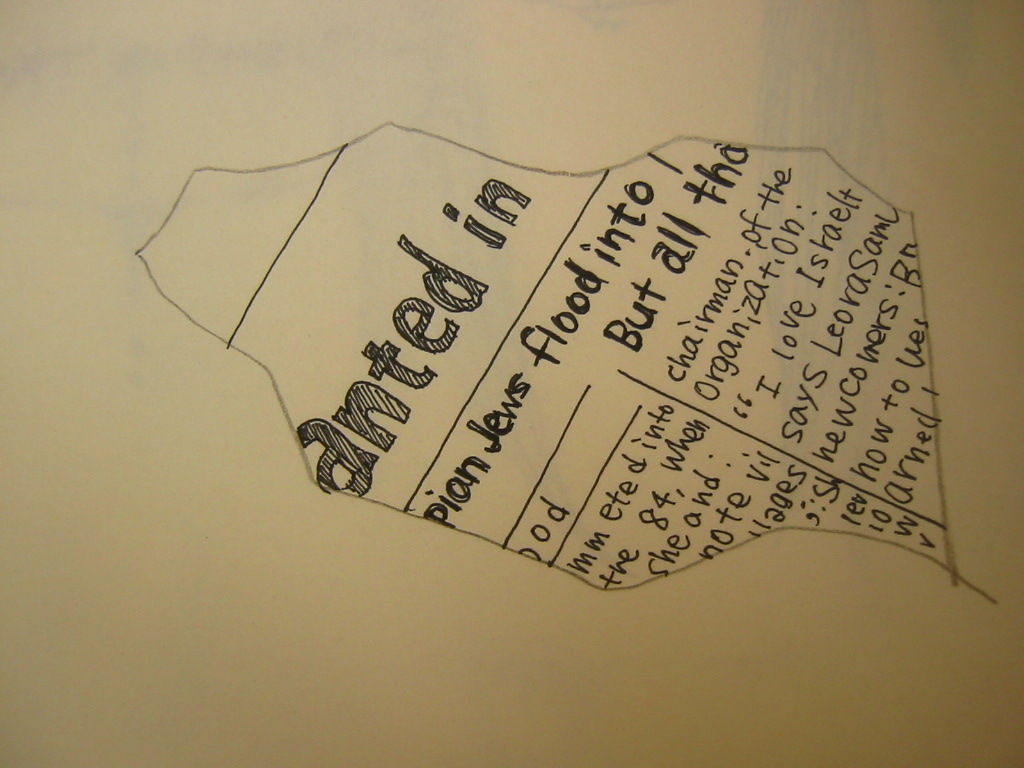 anted in
pian Jews flood into
But all tha
ood
mm ete d into
the 84, when
she and:
note vil
lages
chairman. of the
Organization:
" I love Israelt
says Leora Sam
newcomers: Bn
how to Ues
arned